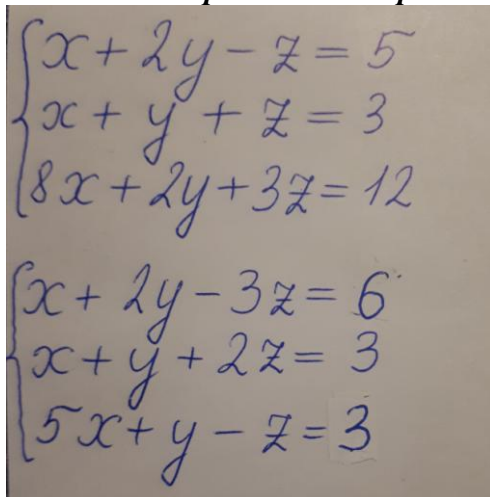 x + 2y - z = 5
x + y + z = 3
8x + 2y + 3z = 12
x + 2y - 3z = 6
x + y + 2z = 3
5x + y - z = 3